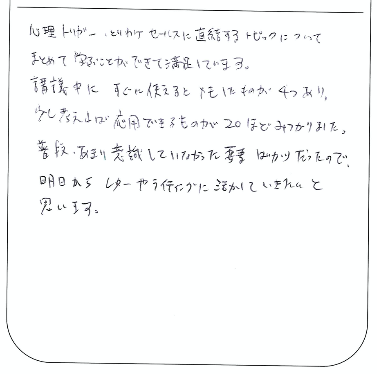 心理トリガー、とりわけセールスに直結するトピックについて
まとめて学ぶことができて満足しています。
講議中に すぐに使えるとメモしたものが4つあり、
少し考えれば応用できるものが20ほどみつかりました。
普段、あまり意識していなかった要素ばかりだったので、
明日からレターやライティングに活かしていきたいと
思います。